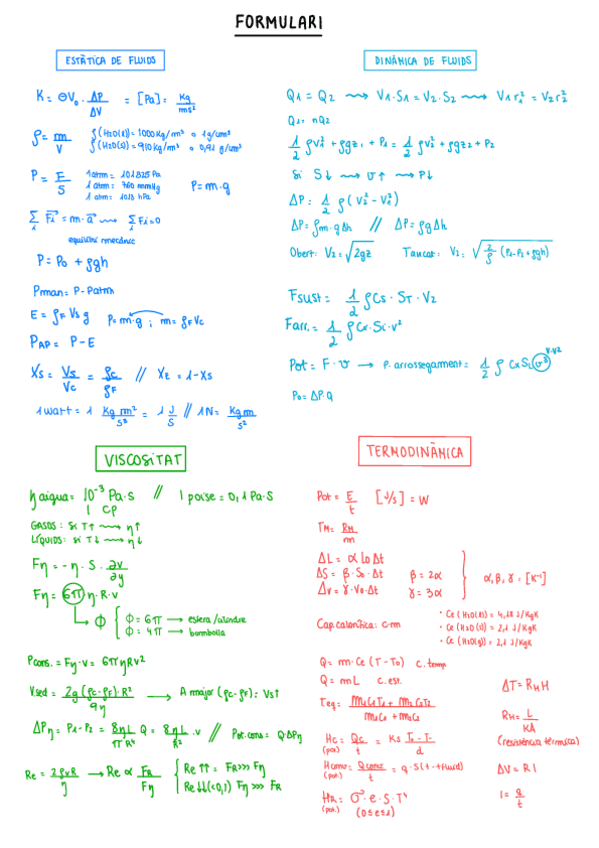 FORMULARI
ESTÀTICA DE FLUIDS
K = ΘV₀ · ΔP/ΔV = [Pa] = Kg/ms²
ρ = m/V
ρ(H2O(l)) = 1000 Kg/m³ o 1g/cm³
ρ(H2O(s)) = 910 Kg/m³ o 0,91 g/cm³
P = F/S
1 atm = 760 mmHg
P = m·g
Σ F⃗i = m·a⃗ ⟿ Σ Fi = 0
equilibri mecànic
P = P₀ + ρgh
Pman = P - Patm
E = ρF Vs g
P = m·g ; m = ρF Vc
PAP = P - E
Xs = Vs/Vc = ρc/ρF // XE = 1 - Xs
1 watt = 1 Kg m²/s³ = 1 J/s // 1N = Kg m/s²
DINÀMICA DE FLUIDS
Q1 = Q2 ⟿ V1·S1 = V2·S2 ⟿ V1 r1² = V2 r2²
Q1 = nQ2
1/2 ρv1² + ρgz1 + P1 = 1/2 ρv2² + ρgz2 + P2
Si S↓ ⟿ v↑ ⟿ P↓
ΔP = 1/2 ρ(V2² - V1²)
ΔP = ρm·gΔh // ΔP = ρgΔh
Obert: V2 = √2gz
Tancat: V2 = √2/ρ (P1-P2+ρgh)
Fsust = 1/2 ρCs · ST · V2
Farr. = 1/2 ρCx·Si·v²
Pot = F · v → P. arrossegament = 1/2 ρ CxSi v³
v·v²
Po = ΔP·Q
VISCOSITAT
η aigua = 10⁻³ Pa·s // 1 poise = 0,1 Pa·S
1 cP
GASOS: Si T↑ ⟿ η↑
LÍQUIDS: Si T↓ ⟿ η↓
Fη = -η · S · ∂v/∂y
Fη = 6π η·R·v
Φ
Φ = 6π → esfera/cilindre
Φ = 4π → bombolla
Pcons. = Fη·v = 6πηRv²
Vsed = 2g(ρc-ρF)·R²/9η → A major (ρc-ρF): Vs↑
ΔPη = P1-P2 = 8ηL/πR⁴ Q = 8ηL/R² · v // Pot.cons = Q·ΔPη
Re = 2ρvR/η → Re ∝ FR/Fη
Re ↑↑ = FR >>> Fη
Re↓↓(<0,1) Fη >>> FR
TERMODINÀMICA
Pot = E/t [J/s] = W
TM = RM/m
ΔL = α L₀ Δt
ΔS = β·S₀·Δt β = 2α
ΔV = γ·V₀·Δt γ = 3α
α, β, γ = [K⁻¹]
Cap. calorífica: c·m
• Ce (H2O(l)) = 4,18 J/KgK
• Ce (H2O(s)) = 2,1 J/KgK
• Ce (H2O(g)) = 2,1 J/KgK
Q = m·Ce (T-T₀) c. temp.
Q = mL c. est.
Teq = M1C1T1 + M2C2T2/M1C1 + M2C2
Hc = Qc/t = KS T₀-T/d
(pot)
Hconv = Qconv/t = q·S(t-tfluid)
(pot.)
HR = σ·e·S·T⁴
(pot.)
(0≤e≤1)
ΔT = RH H
RH = L/KA
(resistència tèrmica)
ΔV = R I
I = q/t